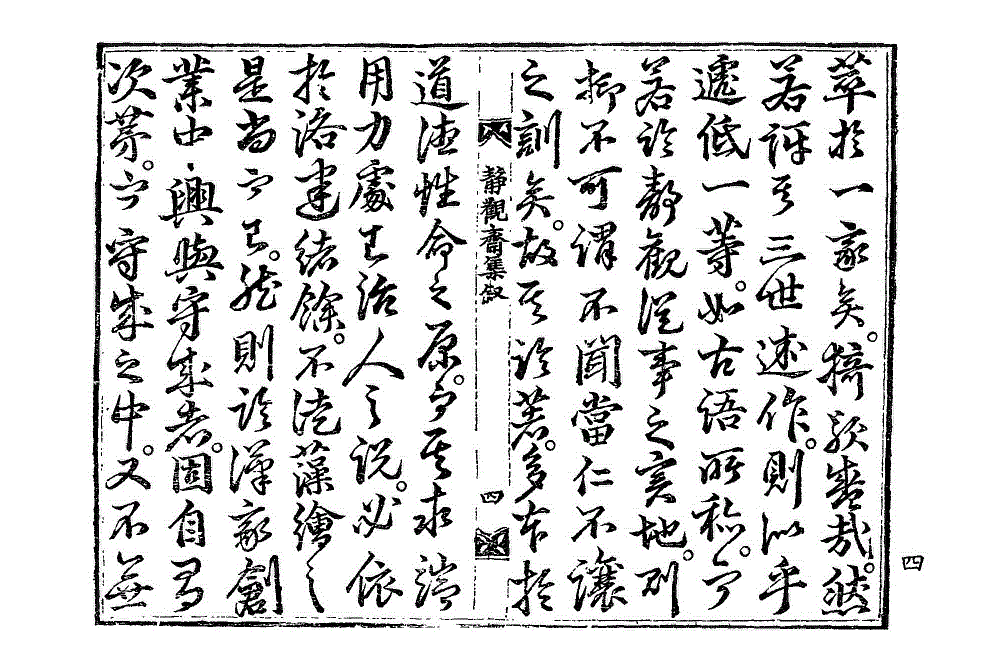 萃於一家矣。猗歟盛哉。然
若評其三世述作。則似乎
遞低一等。如古語所称。而
若論静觀從事之实地。則
抑不可謂不聞當仁不讓
之訓矣。故其論著。多本於
靜觀齋集叙
四
道德性命之原。而其求端
用力處己治人之說。必依
於洛建緒餘。不徒藻繪之
是尚而已。然則論漢家創
業中興與守成者。固自有
次第。而守成之中。又不無
四